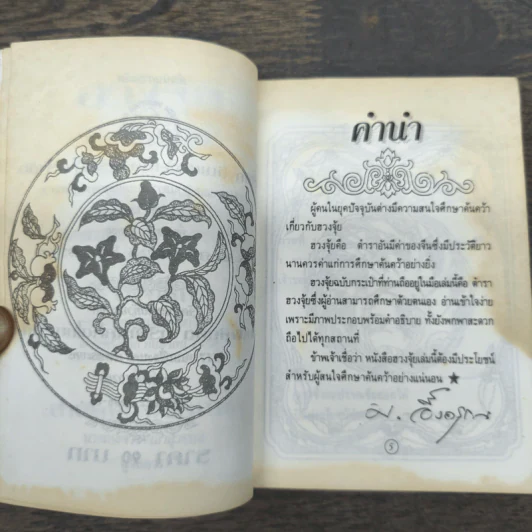 คำนำ
ผู้คนในยุคปัจจุบันต่างมีความสนใจศึกษาค้นคว้า
เกี่ยวกับฮวงจุ้ย
ฮวงจุ้ยคือ ตำราอันมีค่าของจีนซึ่งมีประวัติยาว
นานควรค่าแก่การศึกษาค้นคว้าอย่างยิ่ง
ฮวงจุ้ยฉบับกระเป๋าที่ท่านถืออยู่ในมือเล่มนี้คือ ตำรา
ฮวงจุ้ยซึ่งผู้อ่านสามารถศึกษาด้วยตนเอง อ่านเข้าใจง่าย
เพราะมีภาพประกอบพร้อมคำอธิบาย ทั้งยังพกพาสะดวก
ถือไปได้ทุกสถานที่
ข้าพเจ้าเชื่อว่า หนังสือฮวงจุ้ยเล่มนี้ต้องมีประโยชน์
สำหรับผู้สนใจศึกษาค้นคว้าอย่างแน่นอน ★